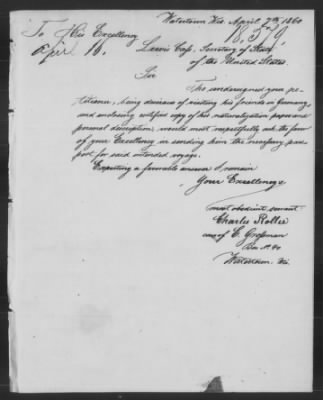 Watertown Wis. April 7th, 1860
18,579.
To His Excellency
April 10. Lewis Cass, Secretary of State
of the United States.
Sir
The undersigned your pe-
titioner, being desirous of visiting his friends in Germany,
and enclosing certified copy of his naturalization papers and
personal description, would most respectfully ask the favor
of your Excellency in sending him the necessary pass
port for said intended voyage.
Expecting a favorable answer I remain
Your Excellency's
most obedient servant
Charles
care of E. Grossman
Box No.
Watertown. Wis.